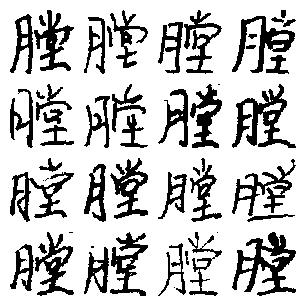 膛膛膛膛
膛膛膛膛
膛膛膛膛
膛膛膛膛